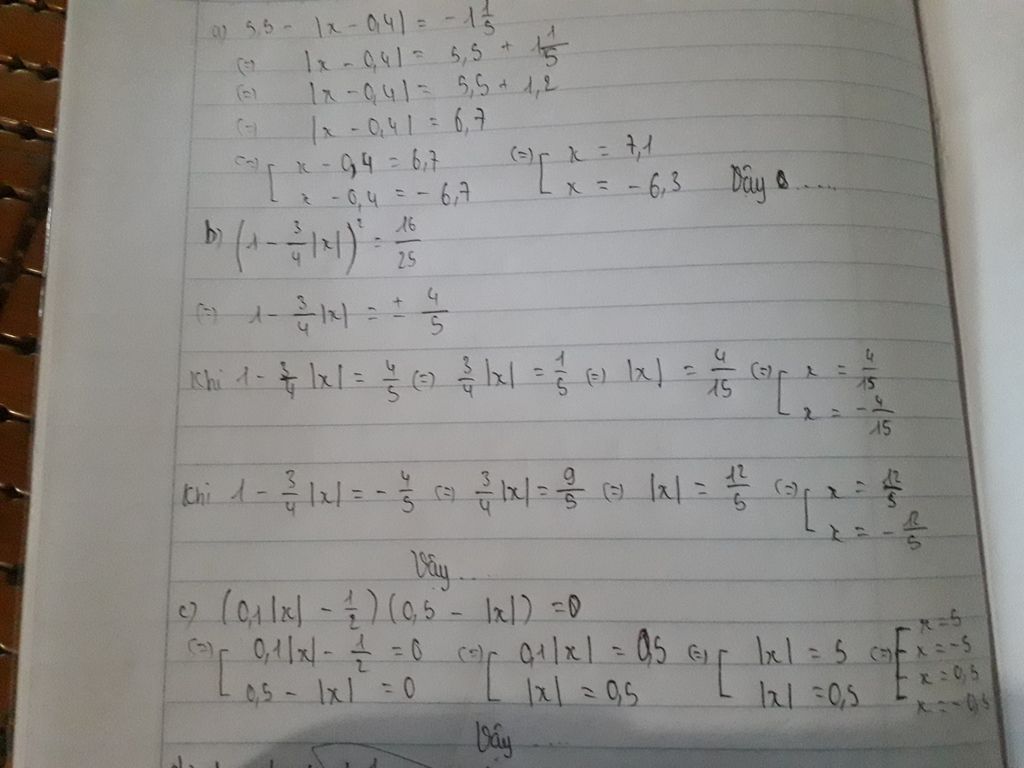 a) 5,5 - |x - 0,4| = -1 1/5
(=) |x - 0,4| = 5,5 + 1 1/5
(=) |x - 0,4| = 5,5 + 1,2
(=) |x - 0,4| = 6,7
(=) [ x - 0,4 = 6,7 (=) [ x = 7,1
x - 0,4 = - 6,7 x = - 6,3 Vậy .....
b) (1 - 3/4 |x|)² = 16/25
(=) 1 - 3/4 |x| = ± 4/5
Khi 1 - 3/4 |x| = 4/5 (=) 3/4 |x| = 1/5 (=) |x| = 4/15 (=) [ x = 4/15
x = - 4/15
Khi 1 - 3/4 |x| = - 4/5 (=) 3/4 |x| = 9/5 (=) |x| = 12/5 (=) [ x = 12/5
x = - 12/5
Vậy ....
c) (0,1|x| - 1/2) (0,5 - |x|) = 0
(=) [ 0,1|x| - 1/2 = 0 (=) [ 0,1|x| = 0,5 (=) [ |x| = 5 (=) [ x = 5
x = -5
0,5 - |x| = 0 |x| = 0,5 |x| = 0,5 x = 0,5
x = -0,5
Vậy ....